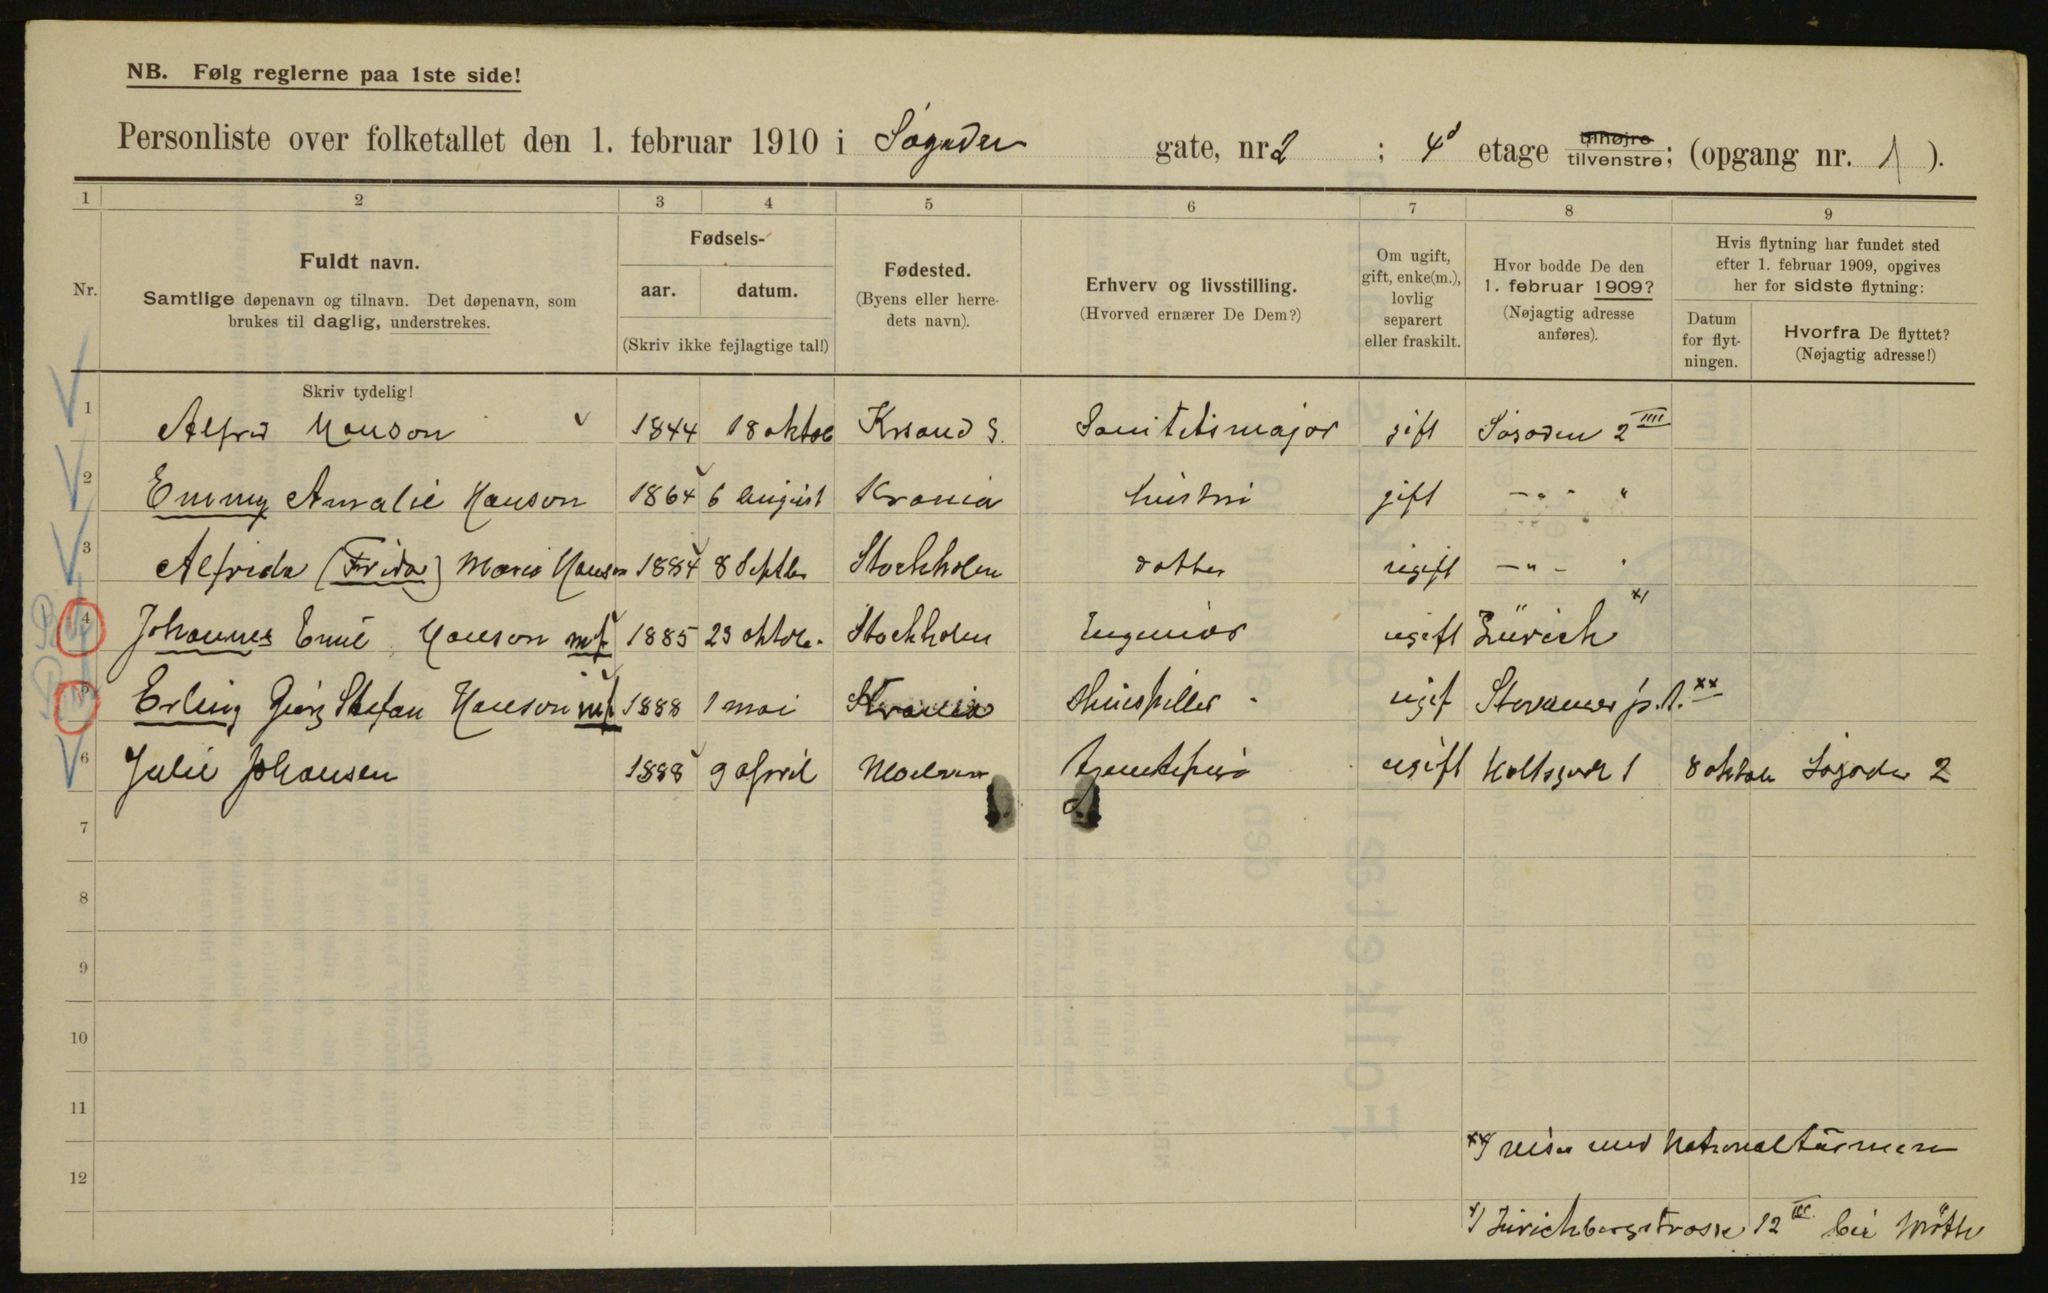 NB. Følg reglerne paa 1ste side!
Personliste over folketallet den 1. februar 1910 i Sogaden gate, nr. 2 ; 4d etage tilhøjre tilvenstre; (opgang nr. 1 ).
1 2 3 4 5 6 7 8 9
Nr.
Fuldt navn.
Samtlige døpenavn og tilnavn. Det døpenavn, som
brukes til daglig, understrekes.
Fødsels-
aar. datum.
(Skriv ikke fejlagtige tal!)
Fødested.
(Byens eller herre-
dets navn).
Erhverv og livsstilling.
(Hvorved ernærer De Dem?)
Om ugift,
gift, enke(m.),
lovlig
separert
eller fraskilt.
Hvor bodde De den
1. februar 1909?
(Nøjagtig adresse
anføres).
Hvis flytning har fundet sted
efter 1. februar 1909, opgives
her for sidste flytning:
Datum
for flyt-
ningen.
Hvorfra De flyttet?
(Nøjagtig adresse!)
Skriv tydelig!
1 Alfred Hanson 1844 18 oktob Krsand S. Sanitetsmajor gift Sogaden 2 IIII
2 Emmy Amalie Hanson 1864 6 August Krania hustru gift - " - "
3 Alfrida (Frida) Marie Hanson 1884 8 Septbr Stockholm datter ugift - " - "
4 Johannes Emil Hanson mf 1885 23 oktob. Stockholm Ingeniør ugift Zürich x)
5 Erling Stefan Hanson mf 1888 1 mai Krania Skuespiller ugif Stavanger p.t. xx
6 Julie Johansen 1888 9 april ugift Holtsgade 1 8 oktob Sogaden 2
7
8
9
10
11
12
xx) reise med Nationalturneen
x) Zürichbergstrasse 12 III bei